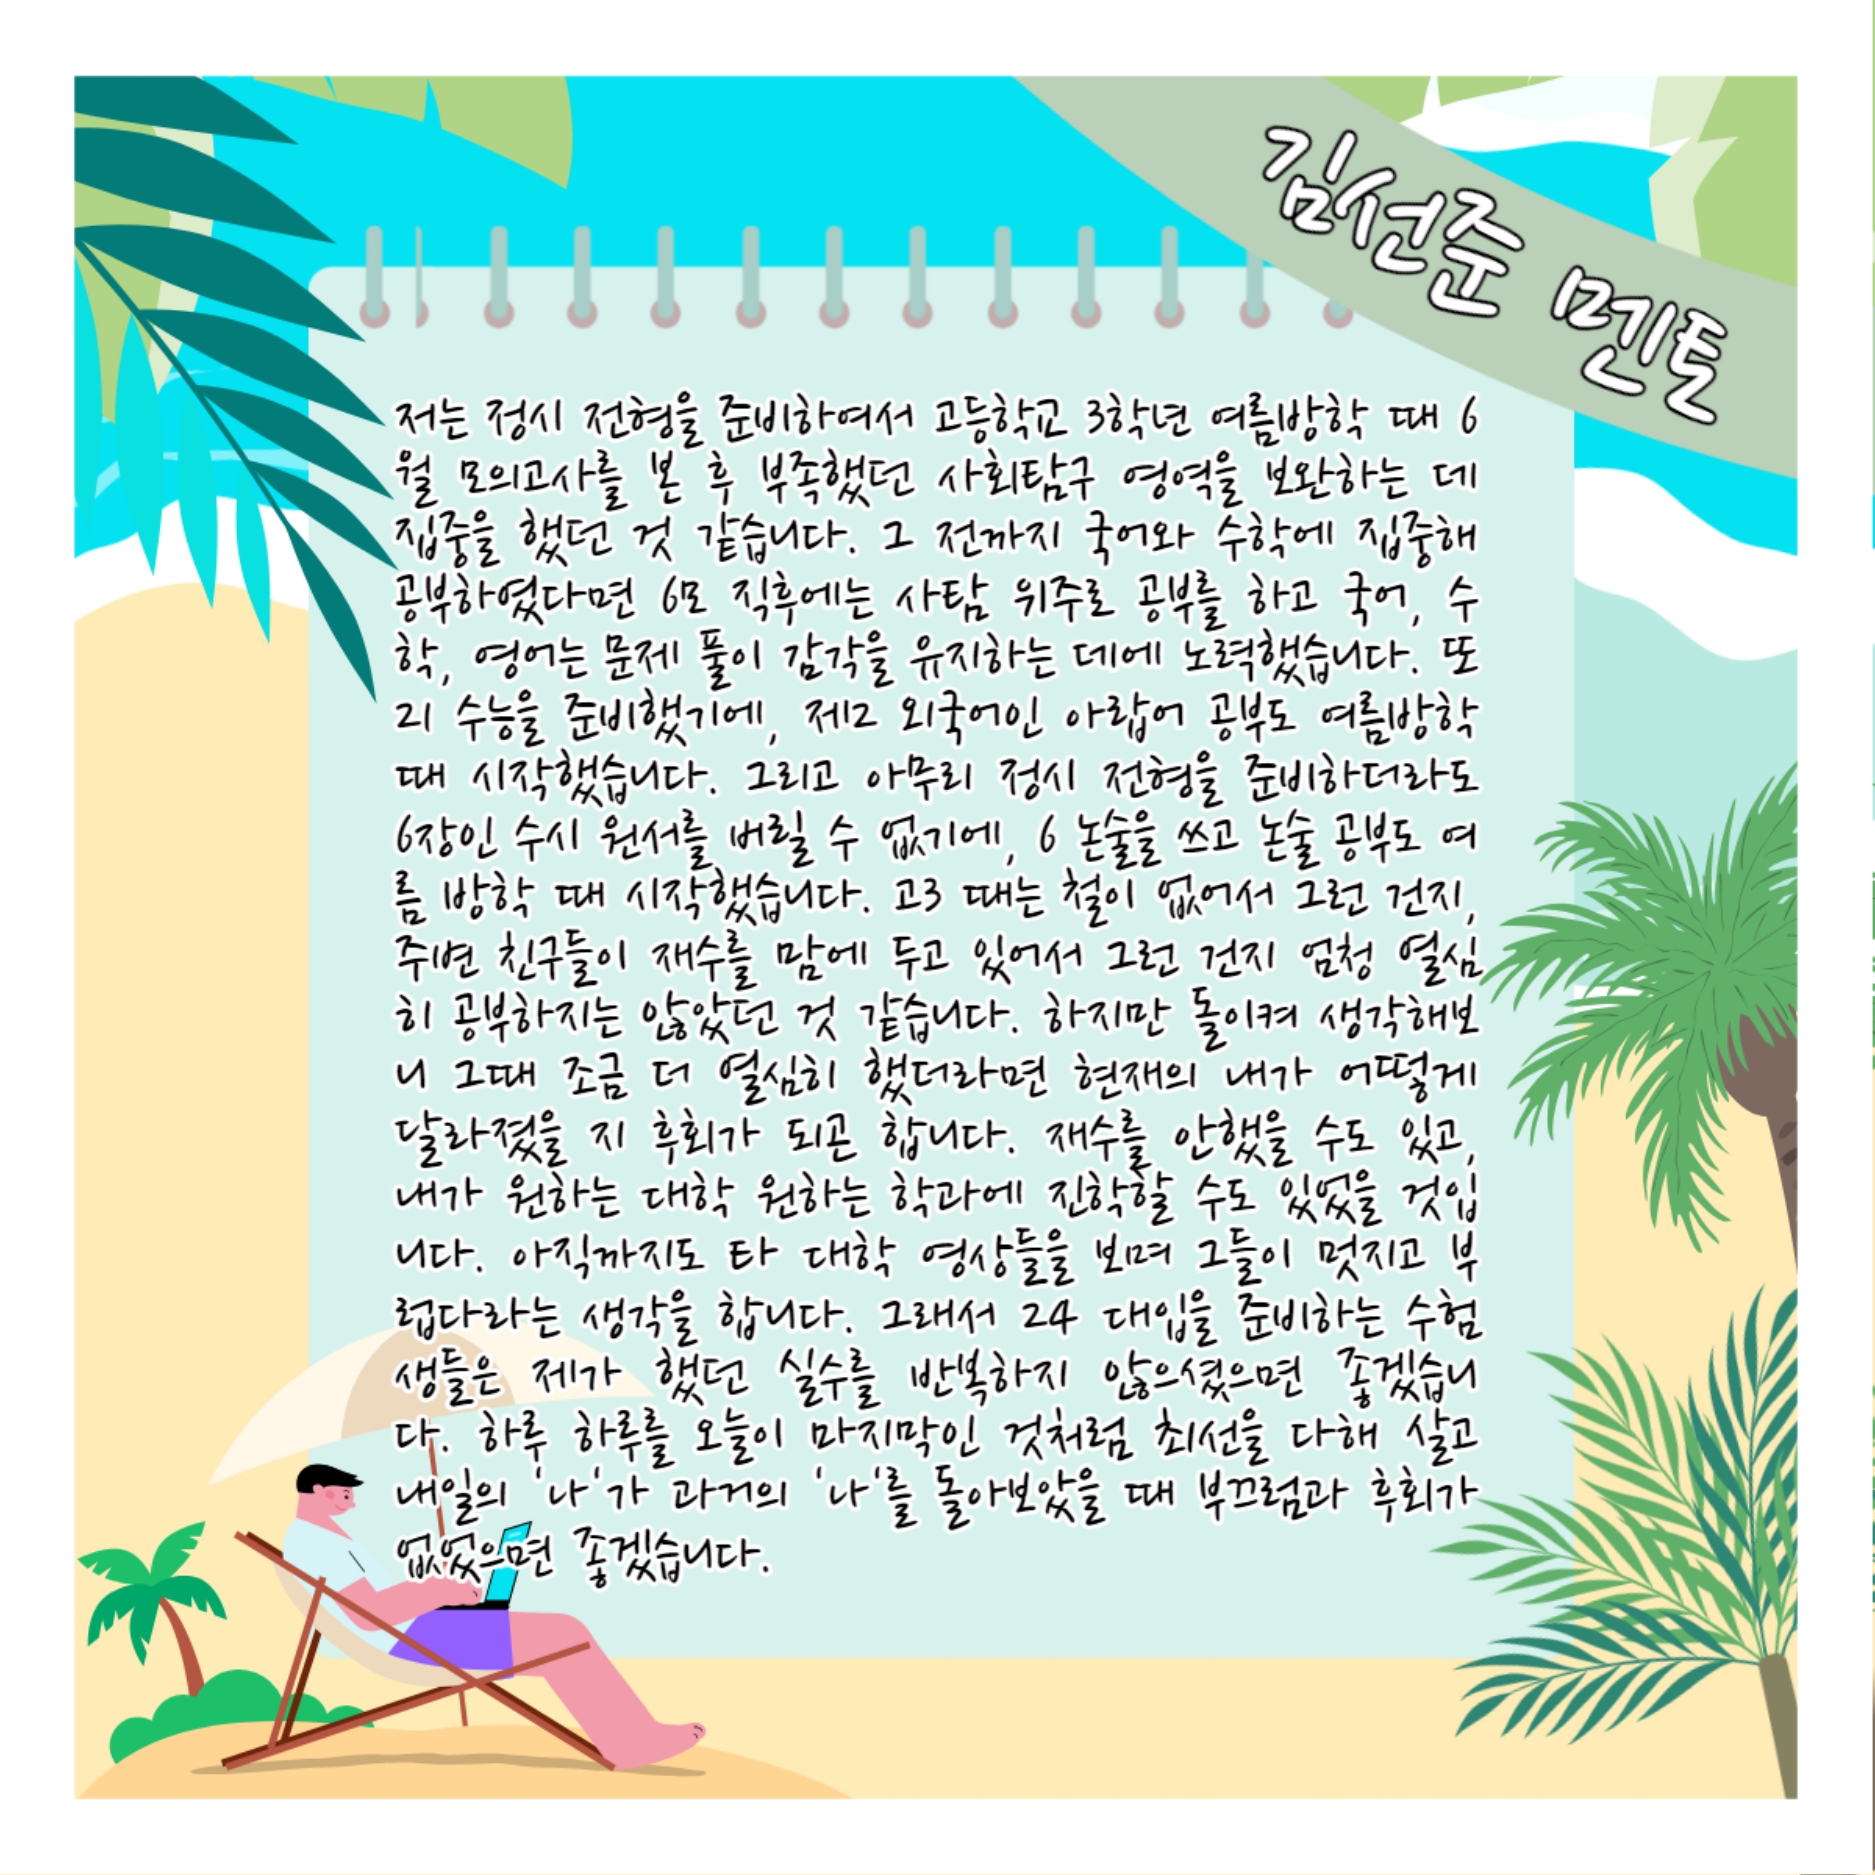 김선준 멘토
저는 정시 전형을 준비하여서 고등학교 3학년 여름방학 때 6
월 모의고사를 본 후 부족했던 사회탐구 영역을 보완하는 데
집중을 했던 것 같습니다. 그 전까지 국어와 수학에 집중해
공부하였다면 6모 직후에는 사탐 위주로 공부를 하고 국어, 수
학, 영어는 문제 풀이 감각을 유지하는 데에 노력했습니다. 또
21 수능을 준비했기에, 제2 외국어인 아랍어 공부도 여름방학
때 시작했습니다. 그리고 아무리 정시 전형을 준비하더라도
6장인 수시 원서를 버릴 수 없기에, 6 논술을 쓰고 논술 공부도 여
름 방학 때 시작했습니다. 고3 때는 철이 없어서 그런 건지,
주변 친구들이 재수를 맘에 두고 있어서 그런 건지 엄청 열심
히 공부하지는 않았던 것 같습니다. 하지만 돌이켜 생각해보
니 그때 조금 더 열심히 했더라면 현재의 내가 어떻게
달라졌을 지 후회가 되곤 합니다. 재수를 안했을 수도 있고,
내가 원하는 대학 원하는 학과에 진학할 수도 있었을 것입
니다. 아직까지도 타 대학 영상들을 보며 그들이 멋지고 부
럽다라는 생각을 합니다. 그래서 24 대입을 준비하는 수험
생들은 제가 했던 실수를 반복하지 않으셨으면 좋겠습니
다. 하루 하루를 오늘이 마지막인 것처럼 최선을 다해 살고
내일의 '나'가 과거의 '나'를 돌아보았을 때 부끄럼과 후회가
없었으면 좋겠습니다.